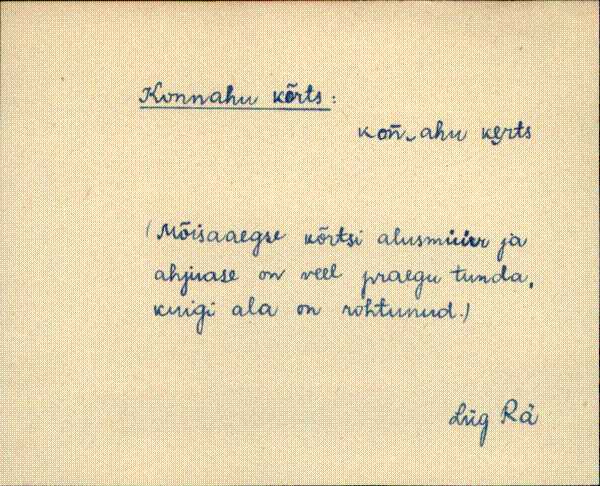 Konnahu kõrts:
kon̄ ̮ahu ke̮rts
(Mõisaaegse kõrtsi alusmüür ja
ahjuase on veel praegu tunda,
kuigi ala on rohtunud.)
Lüg Rä